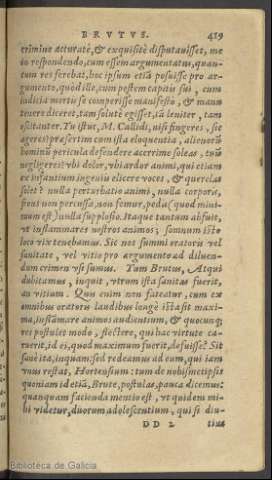 BRVTVS. 419
crimine accuratè, & exquisitè disputauisset, me
io respondendo, cum essem argumentatus, quan-
tum res ferebat, hoc ipsum etiā posuisse pro ar-
gumento, quòd ille, cum pestem capitis sui, cum
indicia mortis se comperisse manifesto, & manu
tenere diceret, tam solutè egisset, tā leniter, tam
oscitanter. Tu istuc, M. Callidi, nisi fingeres, sic
ageres? præsertim cum ista eloquentia, alienorū
hominū pericula defendere acerrimè soleas, tuū
negligeres? vbi dolor, vbi ardor animi, qui etiam
ex infantium ingeniis elicere voces, & querelas
solet? nulla perturbatio animi, nulla corporis,
frons non percussa, non femur, pedū (quod mini-
mum est) nulla supplosio. Itaque tantum abfuit,
vt inflammares nostros animos; somnum isto
loco vix tenebamus. Sic nos summi oratoris vel
sanitate, vel vitio pro argumento ad diluen-
dum crimen vsi sumus. Tum Brutus, Atqui
dubitamus, inquit, vtrum ista sanitas fuerit,
an vitium. Quis enim non fateatur, cum ex
omnibus oratoris laudibus longè ista sit maxi-
ma, inflamare animos audientium, & quocunq;
res postulet modo, flectere, qui hac virtute ca-
ruerit, id ei, quod maximum fuerit, defuisse? Sit
sanè ita, inquam: sed redeamus ad eum, qui iam
vnus restat, Hortensium: tum de nobismetipsis
quoniam id etiā, Brute, postulas, pauca dicemus:
quanquam facienda mentio est, vt quidem mi-
hi videtur, duorum adolescentium, qui si diu-
DD 2 tius
Biblioteca de Galicia